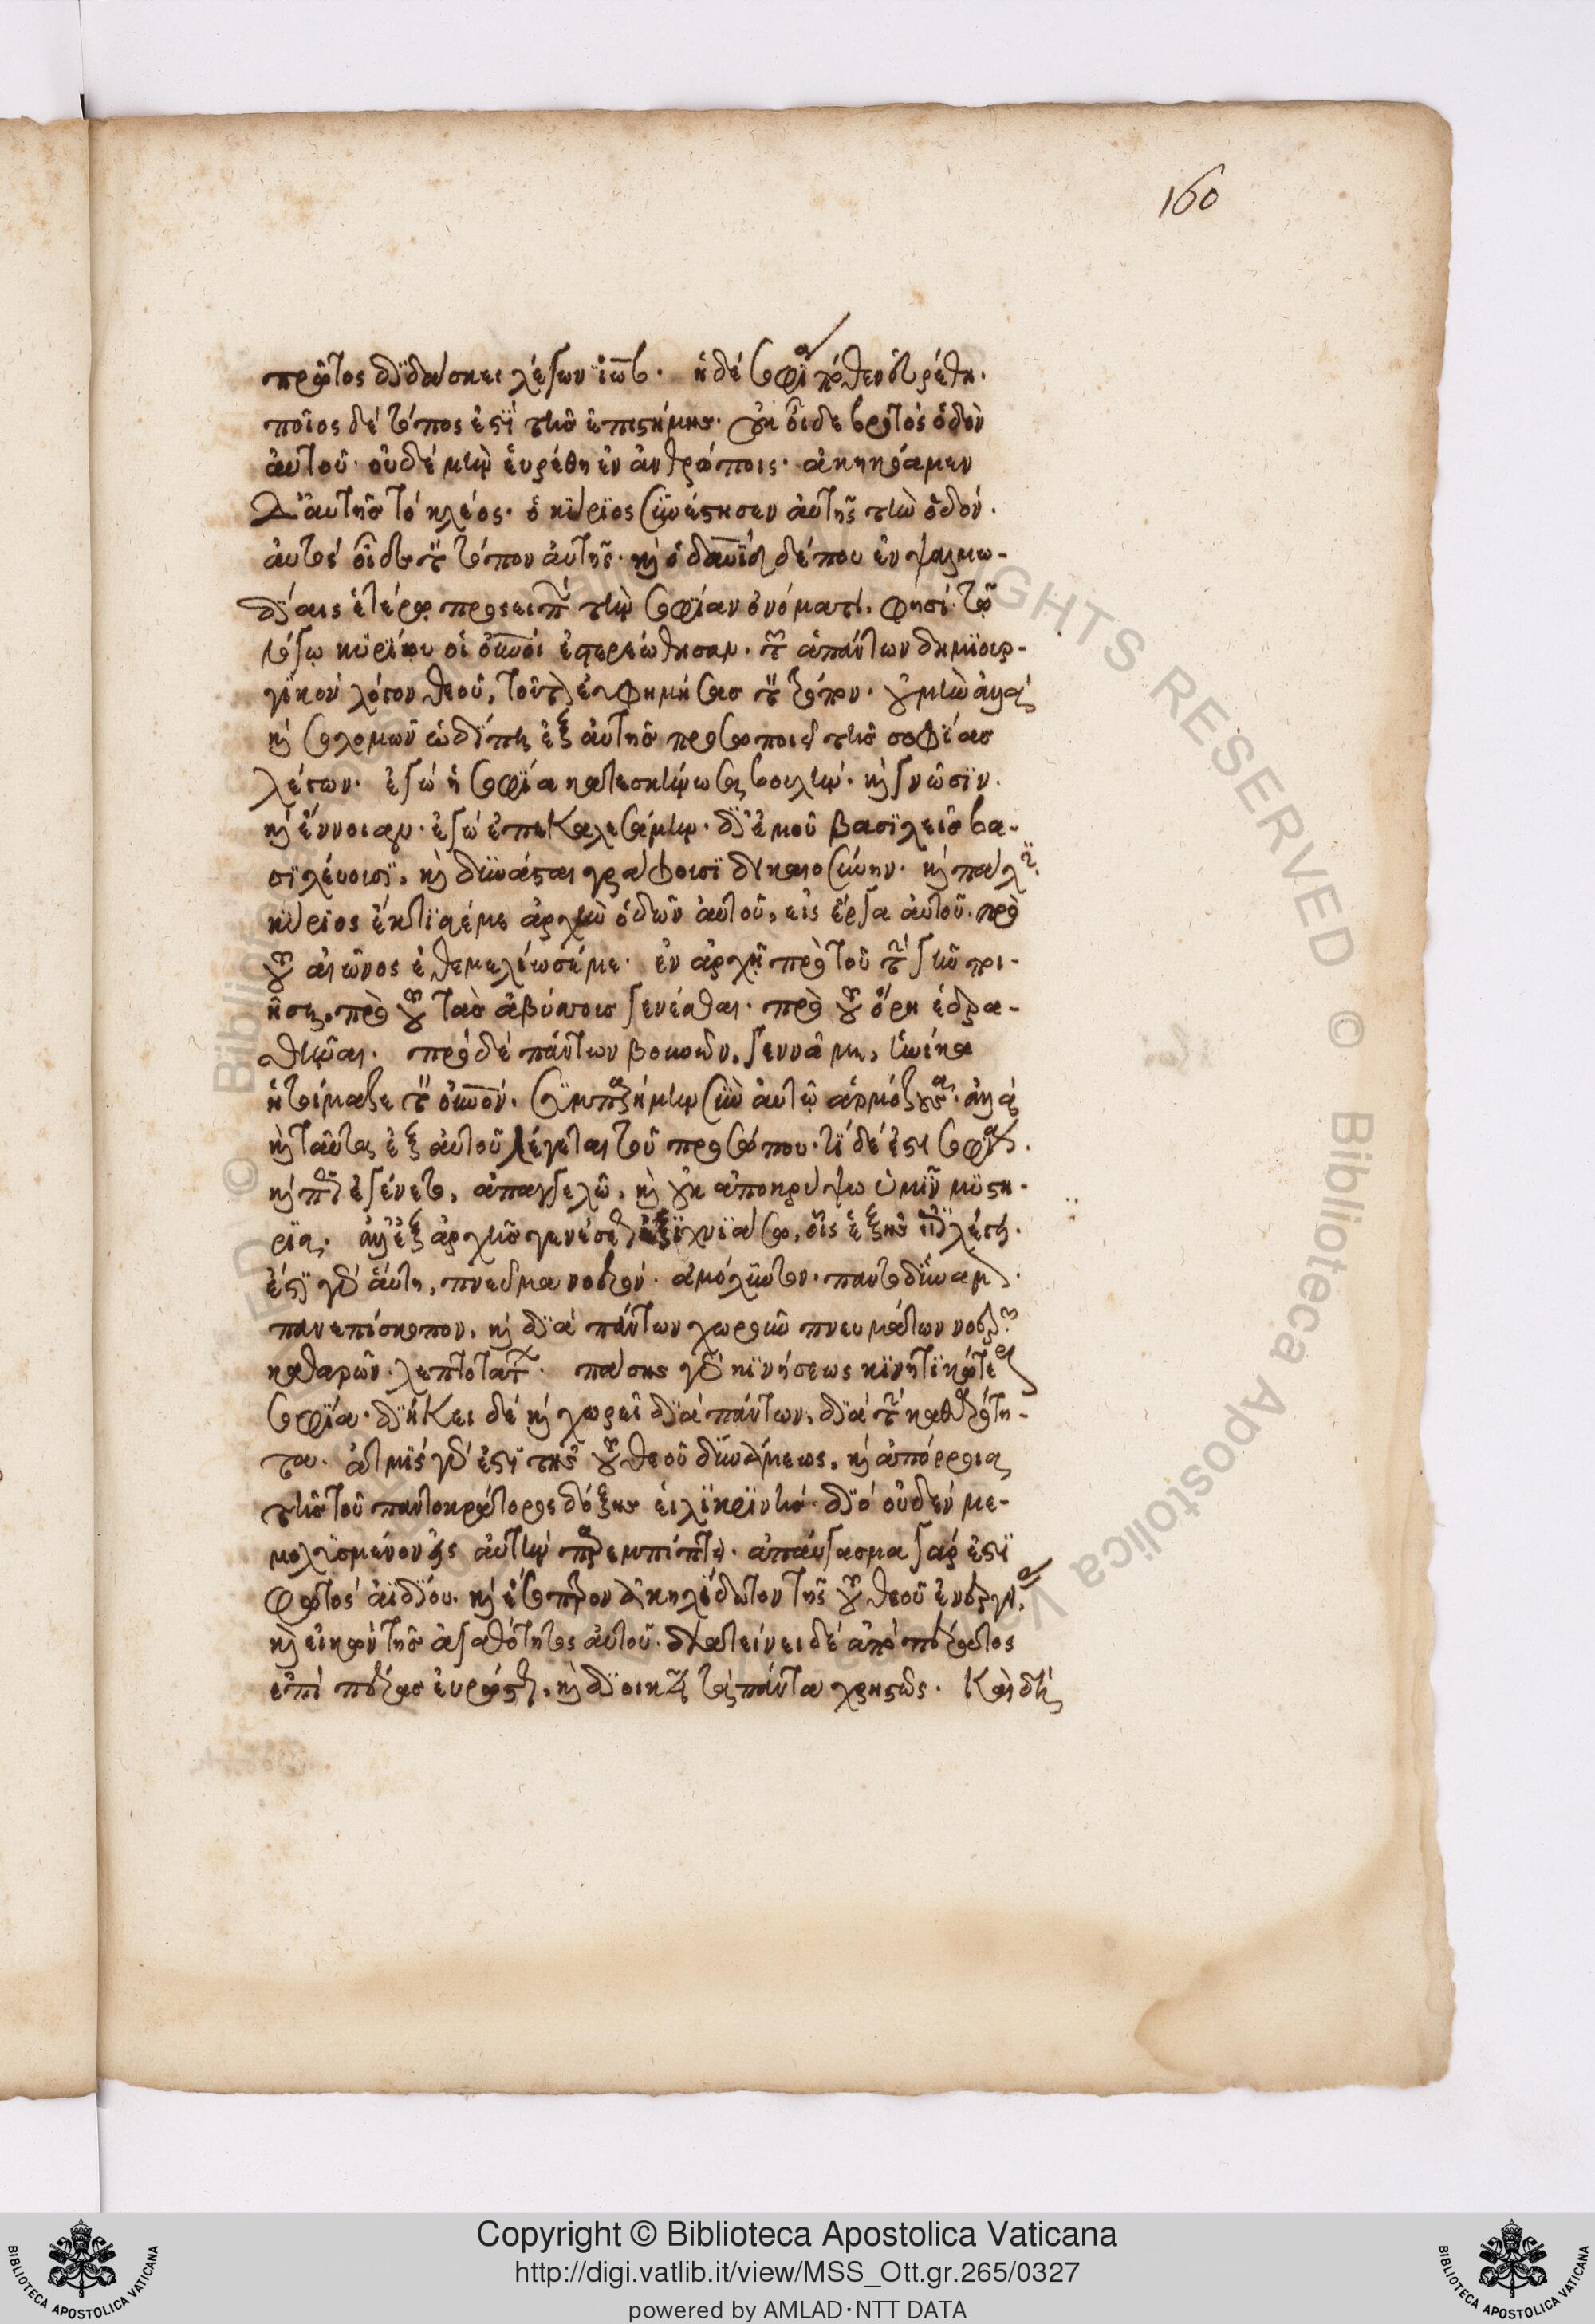 160
πρῶτος διδάσκει λέγων ἰώβ. ἡ δὲ σοφία πόθεν εὑρέθη.
ποῖος δὲ τόπος ἐστὶ τῆς ἐπιστήμης. οὐκ οἶδε βροτὸς ὁδὸν
αὐτοῦ· οὐδὲ μὴν εὑρέθη ἐν ἀνθρώποις. ἀκηκόαμεν
δ' αὐτῆς τὸ κλέος. ὁ κύριος συνέστησεν αὐτῆς τὴν ὁδόν.
αὐτὸς οἶδε τὸν τόπον αὐτῆς. καὶ ὁ δαυὶδ δέ που ἐν ψαλμω-
δίαις ἑτέρῳ προσειπὼν τὴν σοφίαν ὀνόματι, φησὶ. τῷ
λόγῳ κυρίου οἱ οὐνοὶ ἐστερεώθησαν. τὸν ἁπάντων δημιουρ-
γικὸν λόγον θεοῦ, τοῦτον εὐφημήσας τὸν τρόπον. οὐ μὴν ἀλλὰ
καὶ σολομῶν ὁ τούτου παῖς ἐξ αὐτῆς προσώπου τῆς σοφίας
λέγων. ἐγὼ ἡ σοφία κατεσκήνωσα βουλὴν. καὶ γνῶσιν.
καὶ ἔννοιαν. ἐγὼ ἐπεκαλεσάμην. δι' ἐμοῦ βασιλεῖς βα-
σιλεύουσι, καὶ δυνάσται γράφουσι δικαιοσύνην. καὶ πάλιν
κύριος ἔκτισέ με ἀρχὴν ὁδῶν αὐτοῦ, εἰς ἔργα αὐτοῦ. πρὸ
τοῦ αἰῶνος ἐθεμελίωσέ με. ἐν ἀρχῇ πρὸ τοῦ τὴν γῆν ποι-
ῆσαι, πρὸ τοῦ τὰς ἀβύσσους γενέσθαι. πρὸ τοῦ ὄρη ἑδρα-
σθῆναι. πρὸ δὲ πάντων βουνῶν, γεννᾶ με, ἡνίκα
ἡτοίμαζε τὸν οὐνόν. συμπαρήμην σὺν αὐτῷ ἁρμόζουσα. ἀλλὰ
καὶ ταῦτα ἐξ αὐτοῦ λέγεται τοῦ προσώπου. τί δέ ἐστι σοφία.
καὶ πῶς ἐγένετο, ἀπαγγελῶ, καὶ οὐκ ἀποκρύψω ὑμῖν μυστή-
ρια. ἀλλ' ἐξ ἀρχῆς γενέσεως ἐξιχνιάσω, οἷς ἑξῆς ἐπιλέγει.
ἔστι γὰρ αὕτη, πνεῦμα νοερόν. ἀμόλυντον. παντοδύναμον.
πανεπίσκοπον, καὶ διὰ πάντων χωροῦν πνευμάτων νοερῶν
καθαρῶν. λεπτοτάτων. πάσης γὰρ κινήσεως κινητικώτερον
σοφία. διήκει δὲ καὶ χωρεῖ διὰ πάντων, διὰ τὴν καθαρότη-
τα. ἀτμὶς γάρ ἐστι τῆς τοῦ θεοῦ δυνάμεως, καὶ ἀπόρροια
τῆς τοῦ παντοκράτορος δόξης εἰλικρινής. διὸ οὐδὲν με-
μολυσμένον εἰς αὐτὴν παρεμπίπτει. ἀπαύγασμα γάρ ἐστι
φωτὸς ἀϊδίου. καὶ ἔσοπτρον ἀκηλίδωτον τῆς τοῦ θεοῦ ἐνεργείας,
καὶ εἰκὼν τῆς ἀγαθότητος αὐτοῦ. διατείνει δὲ ἀπὸ πέρατος
ἐπὶ πέρας εὐρώστως, καὶ διοικεῖ τὰ πάντα χρηστῶς.
Copyright © Biblioteca Apostolica Vaticana
http://digi.vatlib.it/view/MSS_Ott.gr.265/0327
powered by AMLAD·NTT DATA